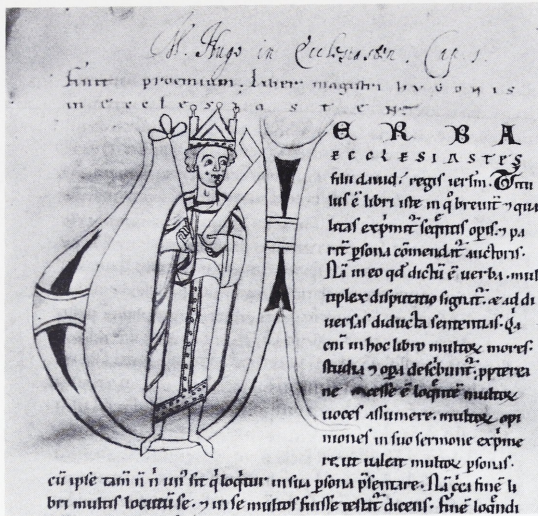 M. Hugo in Ecclesiasten. Cap. 1.
finit proemium. Liber magistri hugonis
in ecclesiasten
ERBA
ECCLESIASTES
filii dauid. regis ierlm. Titu
lus ē libri iste in q̊ breuit᷑ ⁊ qua
litas exp̄mit᷑ seq̄ntis op̄is. ⁊ pa
rit᷑ p̄sona cōmendat᷑ auctoris.
Nā in eo qd̄ dictū ē uerba. mul
tiplex disputatio signat᷑. ⁊ ad di
uersas diducta sententias. Q̄a
enī in hoc libro multoꝝ mores.
studia ⁊ oꝑa desc̄bunt᷑. ꝓpterea
necesse ē loq̄ntē multoꝝ
uoces assumere. multoꝝ opi
niones in suo sermone exp̄me
re. ut ualeat multoꝝ ꝑsonas.
cū ipse tam̄ n̄ n̄ un᷒ sit q̇ loq̇tur in sua ꝑsona p̄sentare. Nā c̄ca finē li
bri multis locutū se. ⁊ in se multos fuisse testat᷑ dicens. finē loq̄ndi